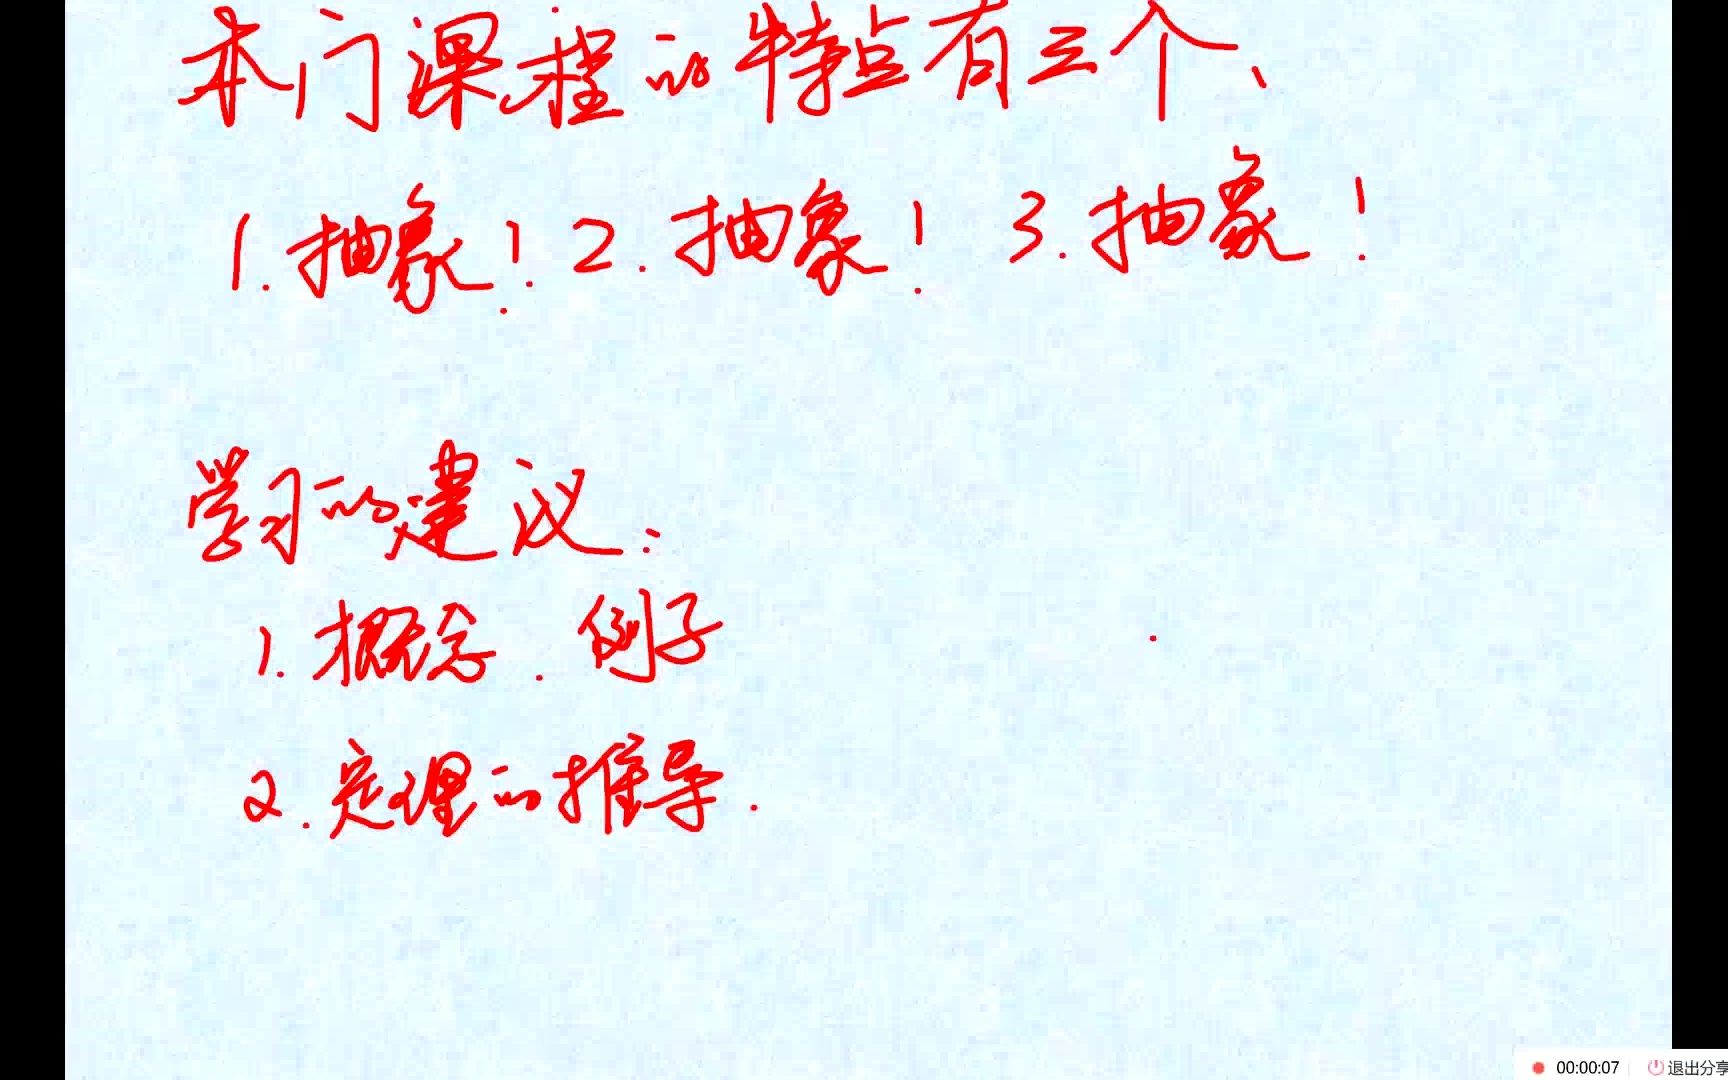 本门课程的特点有三个、
1. 抽象! 2. 抽象! 3. 抽象!
学习的建议:
1. 概念. 例子
2. 定理的推导.
00:00:07 退出分享